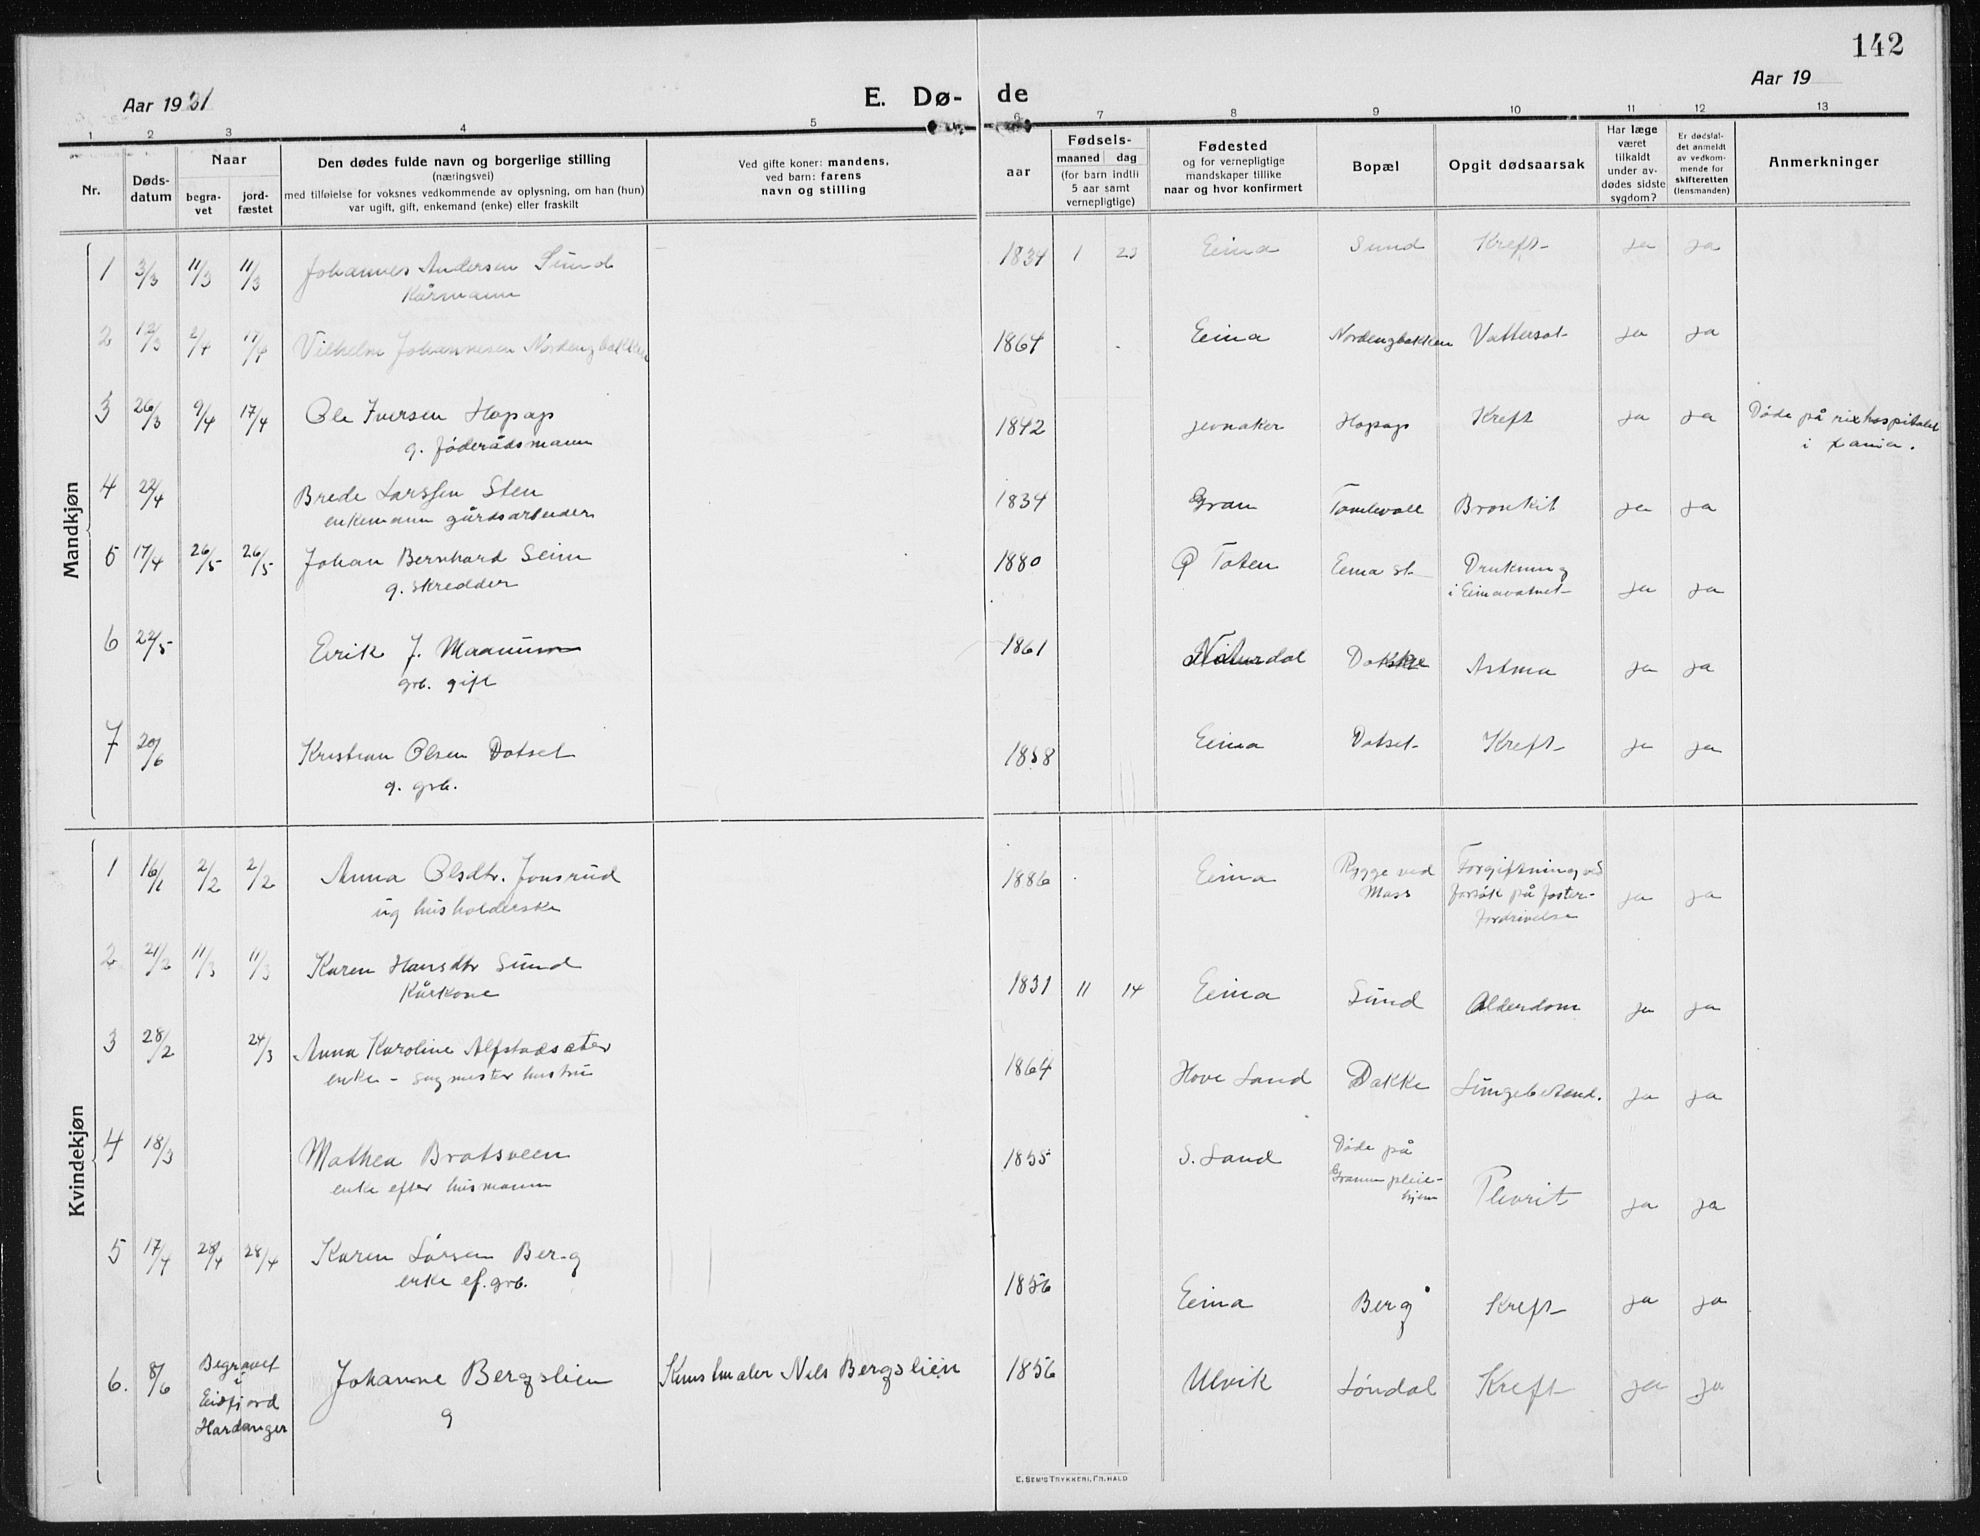 142
Aar 1921
E. Dø-
de
Aar 19
1 2 3 4 5 6 7 8 9 10 11 12 13
Nr.
Døds-
datum
Naar
begra-
vet
jord-
fæstet
Den dødes fulde navn og borgerlige stilling
(næringsvei)
med tilføielse for voksnes vedkommende av oplysning, om han (hun)
var ugift, gift, enkemand (enke) eller fraskilt
Ved gifte koner: mandens,
ved barn: farens
navn og stilling
Fødsels-
aar
maaned dag
(for barn indtil
5 aar samt
vernepligtige)
Fødested
og for vernepligtige
mandskaper tillike
naar og hvor konfirmert
Bopæl
Opgit dødsaarsak
Har læge
været
tilkaldt
under av-
dødes sidste
sygdom?
Er dødsfal-
det anmeldt
av vedkom-
mende for
skifteretten
(lensmanden)
Anmerkninger
Mandkjøn
1 3/3 11/3 11/3 Johannes Andersen Sund 1834 1 23 Eina Sund Kreft ja ja
Kårmann
2 12/3 2/4 17/4 Vilhelm Johannesen Nordengbakken 1864 Eina Nordengbakken Vattersot ja ja
3 26/3 9/4 17/4 Ole Iversen Hågår 1842 Jevnaker ja ja Døde på rikshospitalet
g. føderådsmann i Xania.
4 22/4 Brede Larssen Sten 1834 Gran Bronkit ja ja
enkemann gårdsarbeider
5 17/4 26/5 26/5 Johan Bernhard Seim 1880 Ø Toten Eina st. Drukning
g. skredder i Einavatnet ja ja
6 22/5 Eirik J. Maanum 1861 Dokke Astma ja ja
grb. gift
7 20/6 Kristian Olsen Dotset 1858 Eina Dotset Kreft ja ja
g. grb.
Kvindekjøn
1 16/1 2/2 2/2 Anna Olsdtr. Jonsrud 1886 Eina Rygge ved Forgiftning ved
ug husholderske Moss forsøk på foster- ja ja
fordrivelse
2 21/2 11/3 11/3 Karen Hansdtr Sund 1831 11 14 Eina Sund Alderdom ja ja
Kårkone
3 28/2 24/3 Anna Karoline Alfstadsæter 1864 Hove Land Dakke Lungebetend. ja ja
enke - sagmester hustru
4 18/3 Mathea Bratsveen 1855 S. Land Døde på
enke efter husmann Granum pleie-
hjem Plevrit ja ja
5 17/4 28/4 28/4 Karen Larsen Berg 1856
enke ef. grb. Eina Berg Kreft ja ja
6. 8/6 Begravet
i
Eidfjord
Hardanger
Johanne Bergslien Kunstmaler Nils Bergslien 1856 Ulvik Løndal Kreft ja ja
g
E. SEM'S TRYKKERI, FR.HALD